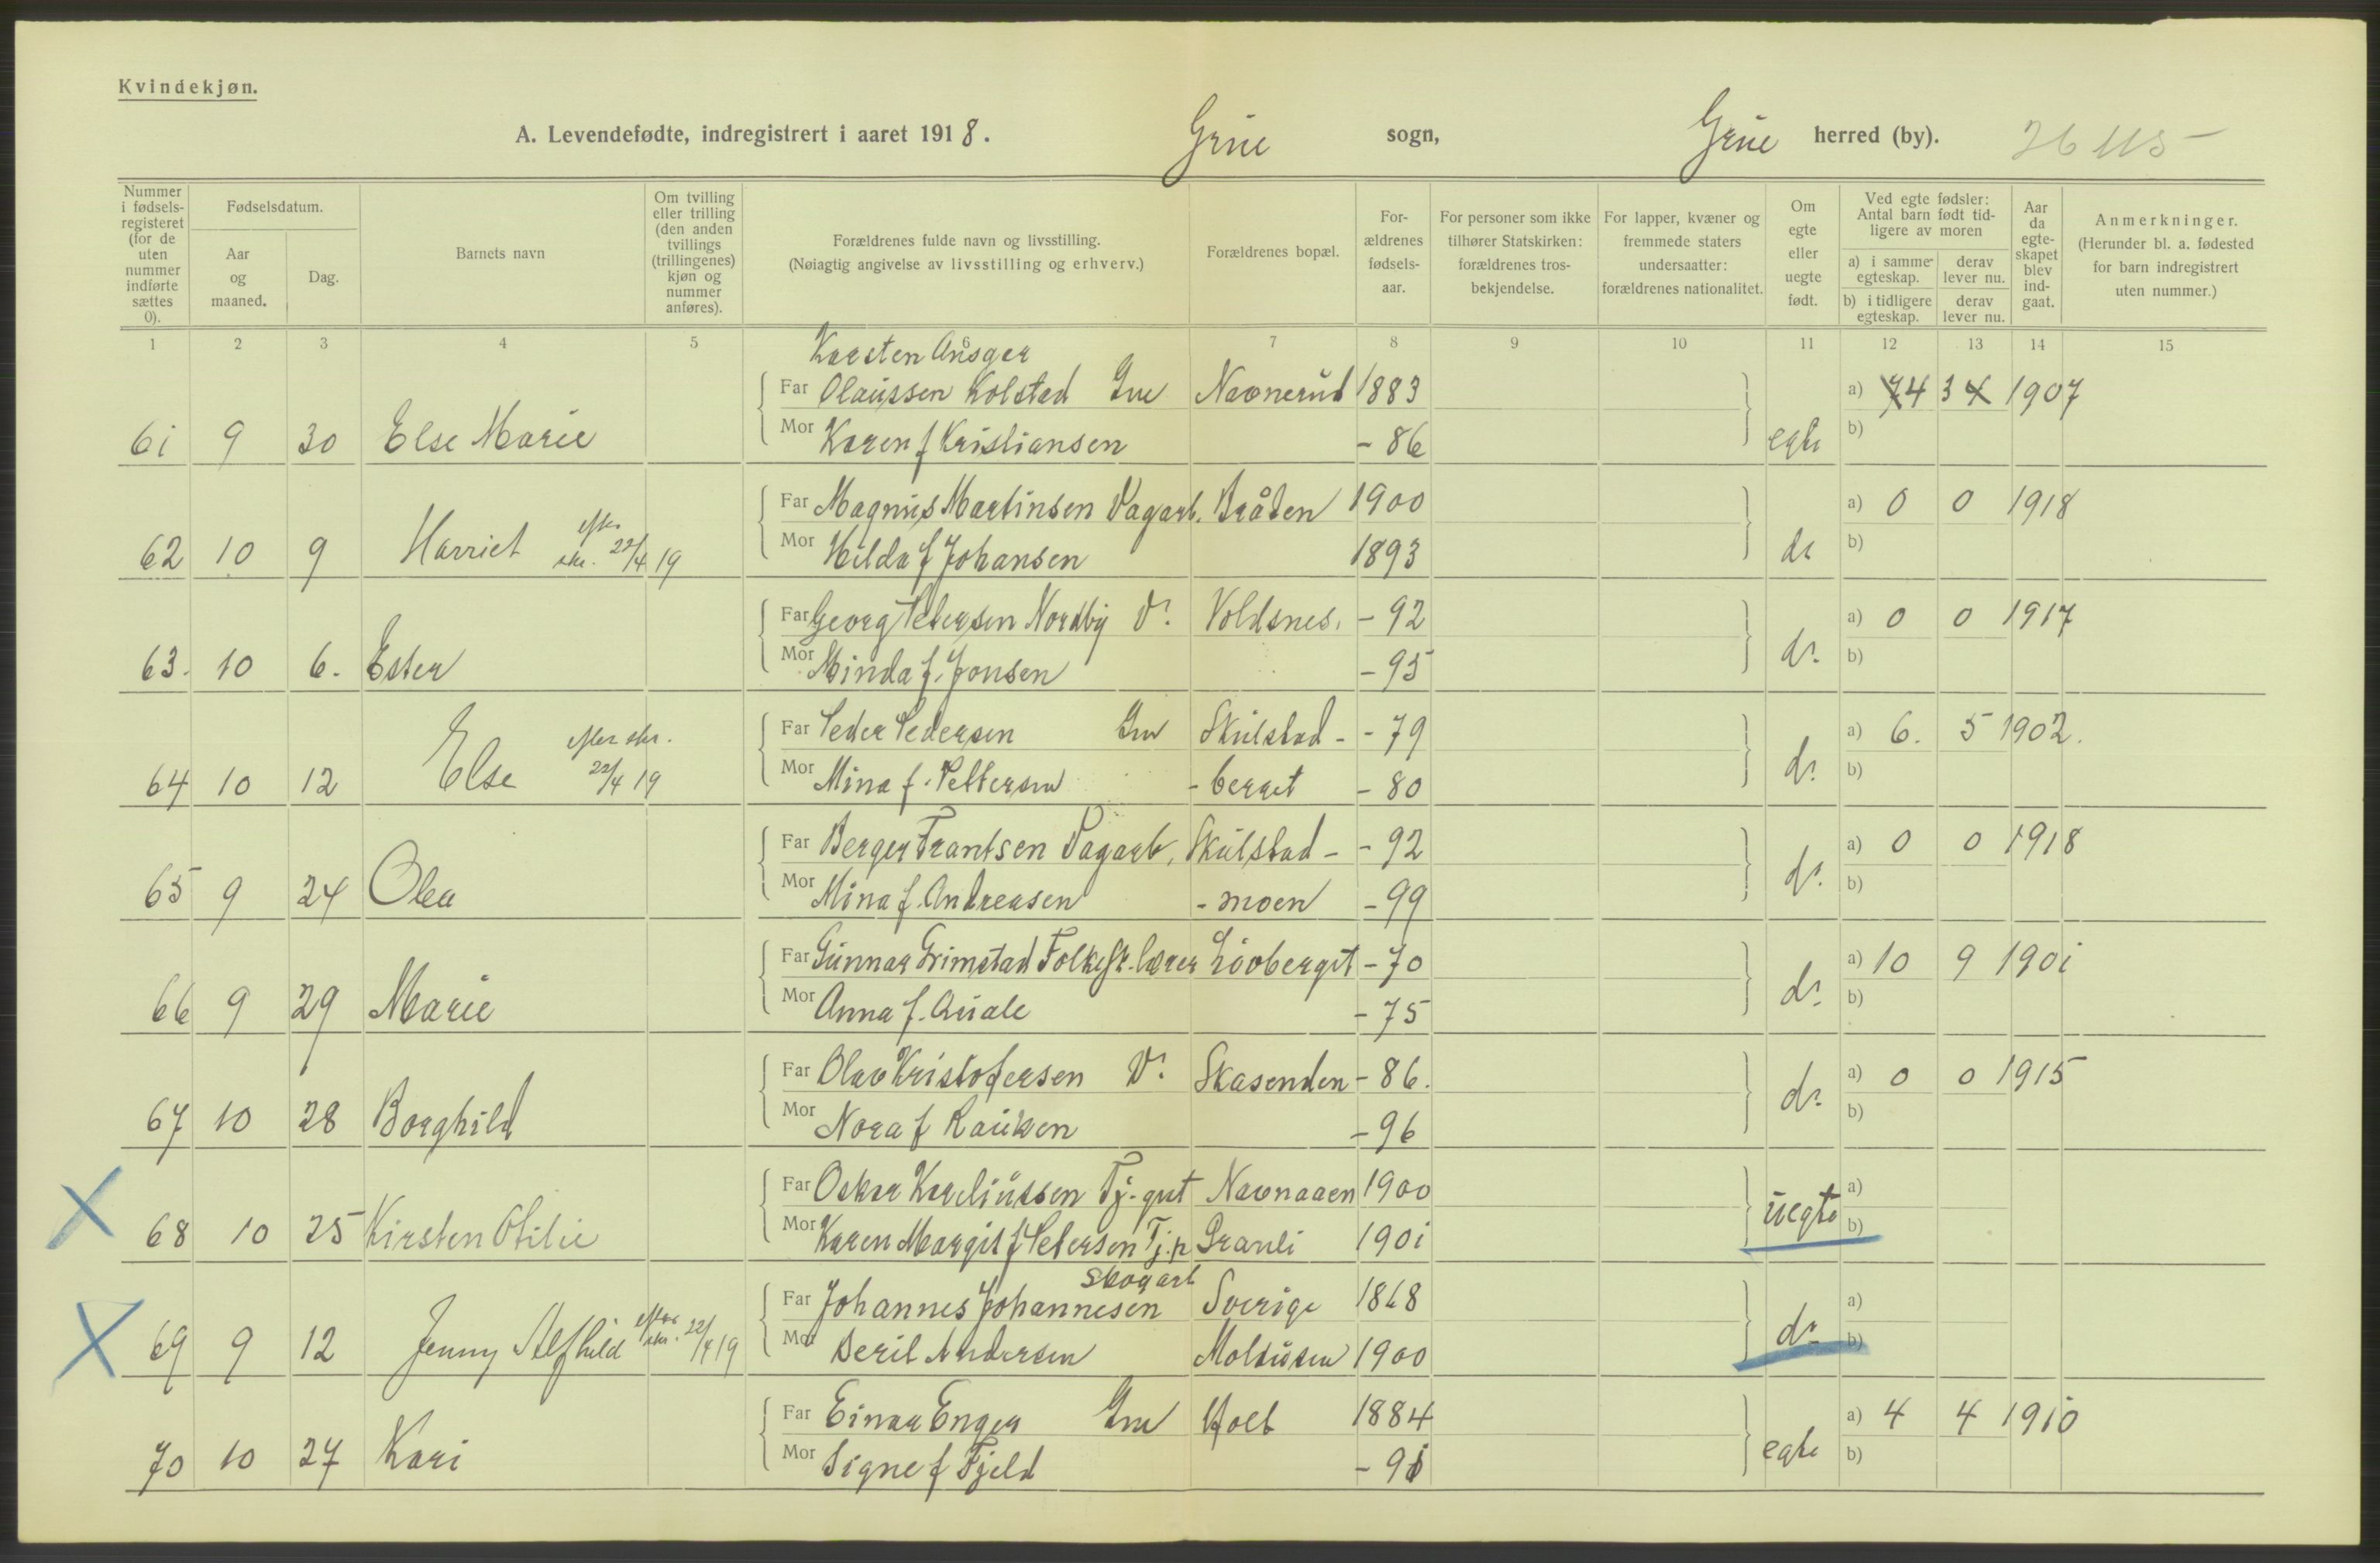 Kvindekjøn.
A. Levendefødte, indregistrert i aaret 1918. Grue sogn, Grue herred (by).
Nummer i fødsels-registeret (for de uten nummer indførte sættes 0).
Fødselsdatum.
Aar og maaned.
Dag.
Barnets navn
Om tvilling eller trilling (den anden tvillings (trillingenes) kjøn og nummer anføres).
Forældrenes fulde navn og livsstilling.
(Nøiagtig angivelse av livsstilling og erhverv.)
Forældrenes bopæl.
For-ældrenes fødsels-aar.
For personer som ikke tilhører Statskirken: forældrenes tros-bekjendelse.
For lapper, kvæner og fremmede staters undersaatter: forældrenes nationalitet.
Om egte eller uegte født.
Ved egte fødsler: Antal barn født tid-ligere av moren
a) i samme egteskap.
derav lever nu.
b) i tidligere egteskap.
derav lever nu.
Aar da egte-skapet blev ind-gaat.
Anmerkninger.
(Herunder bl. a. fødested for barn indregistrert uten nummer.)
1 2 3 4 5 6 7 8 9 10 11 12 13 14 15
Karsten Ansger
Far Olaussen Kolstad Grr Navnerud 1883 a) 74 3 4 1907
61 9 30 Else Marie Mor Karen f Kristiansen - 86 egte b)
Far Magnus Martinsen Dagarb. Bråten 1900 a) 0 0 1918
62 10 9 Harriet efter skr. 22/4 19 Mor Hilda f Johansen 1893 do b)
Far Georg Petersen Nordby Do. Voldsnes. - 92 a) 0 0 1917
63. 10 6. Ester Mor Minda f. Jonsen - 95 do. b)
Far Peder Pedersen Skulstad - - 79 a) 6. 5 1902.
64 10 12 Else efter skr. 22/4 19 Mor Mina f. Pettersen - berget - 80 do. b)
Far Berger Frantsen Dagarb. Skulstad - - 92 a) 0 0 1918
65 9 24 Olea Mor Mina f. Andreasen - moen - 99 do. b)
Far Gunnar Grimstad Folkesk. lærer Løvberget - 70 a) 10 9 1901
66 9 29 Marie Mor Anna f. Quale - 75 do. b)
Far Olav Kristofersen Do. Skasenden - 86. a) 0 0 1915
67 10 28 Borghild Mor Nora f Rauken - 96 do. b)
Far Oskar Kareliussen Tj. gut Navnaaen 1900 a)
68 10 25 Kirsten Otilie Mor Karen Margit f Petersen Tj. p Granli 1901 uegte b)
Skogarb
Far Johannes Johannesen Sverige 1868 a)
69 9 12 Jenny Alfhild efter skr. 22/4 19 Mor Beril Andersen 1900 do b)
Far Einar Enger Holt 1884 a) 4 4 1910
70 10 27 Kari Mor Signe f Fjeld - 91 egte b)